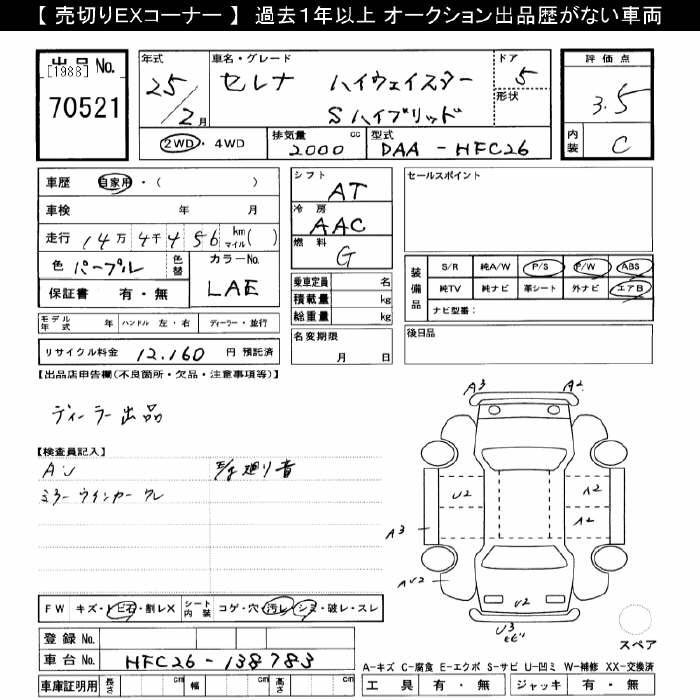 【 売切りEXコーナー 】 過去1年以上 オークション出品歴がない車両
出品 No.
[1988]
70521
年式
25/2月
車名・グレード
セレナ ハイウェイスター
Sハイブリッド
ドア
5
形状
評価点
3.5
内装
C
2WD・4WD
排気量
2000 cc
型式
DAA - HFC26
車歴 自家用・( )
車検 年 月
走行 14万 4千 4 56 km マイル( )
色 パープル 色替
カラーNo.
LAE
保証書 有・無
シフト
AT
冷房
AAC
燃料
G
乗車定員 名
積載量 kg
総重量 kg
名変期限
月 日
セールスポイント
装備品
S/R 純A/W P/S P/W ABS
純TV 純ナビ 革シート 外ナビ エアB
ナビ型番：
後日品
モデル年式 年 ハンドル 左・右 ディーラー・並行
リサイクル料金 12,160 円 預託済
【出品店申告欄(不良箇所・欠品・注意事項等)】
ディーラー出品
【検査員記入】
AU
廻り音
ミラーウインカー
A3
A2
U2
A2
A2
A3
AU2
U2
U3
FW キズ・トビ石・割レX シート内装 コゲ・穴・汚レ・シミ・破レ・スレ
登録 No.
車台 No. HFC26 - 138783
車庫証明用 長さ cm 幅 cm 高さ cm
スペア
A-キズ C-腐食 E-エクボ S-サビ U-凹ミ W-補修 XX-交換済
工具 有・無 ジャッキ 有・無